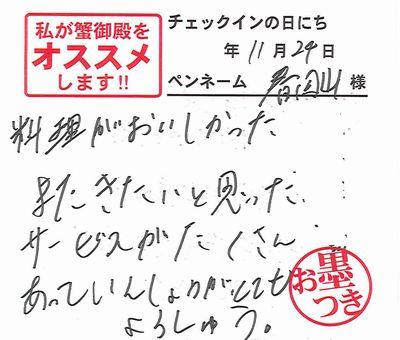 私が蟹御殿を
オススメ
します!!
チェックインの日にち
年 11月 29日
ペンネーム 春日山 様
料理がおいしかった
またきたいと思った
サービスがたくさん
あって
よろしゅう。
お墨つき